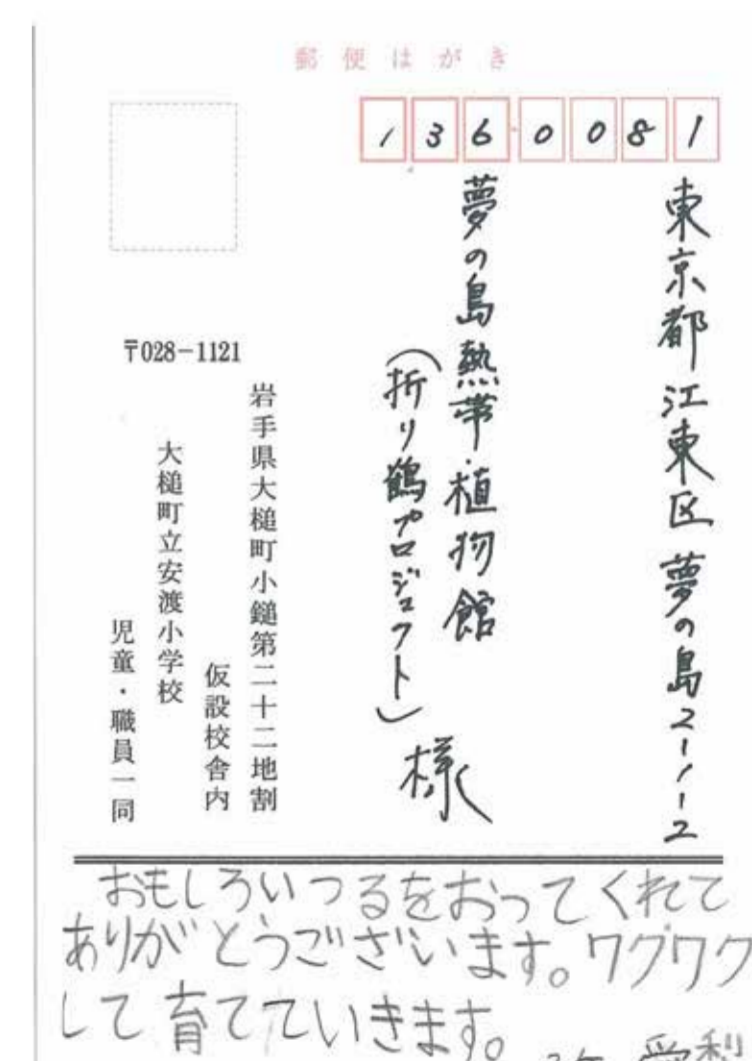 郵便はがき
1360081
東京都江東区夢の島2-1-2
夢の島熱帯植物館
(折り鶴プロジェクト)様
〒028-1121
岩手県大槌町小鎚第二十二地割
仮設校舎内
大槌町立安渡小学校
児童・職員一同
おもしろいつるをおってくれて
ありがとうございます。ワクワク
して育てていきます。